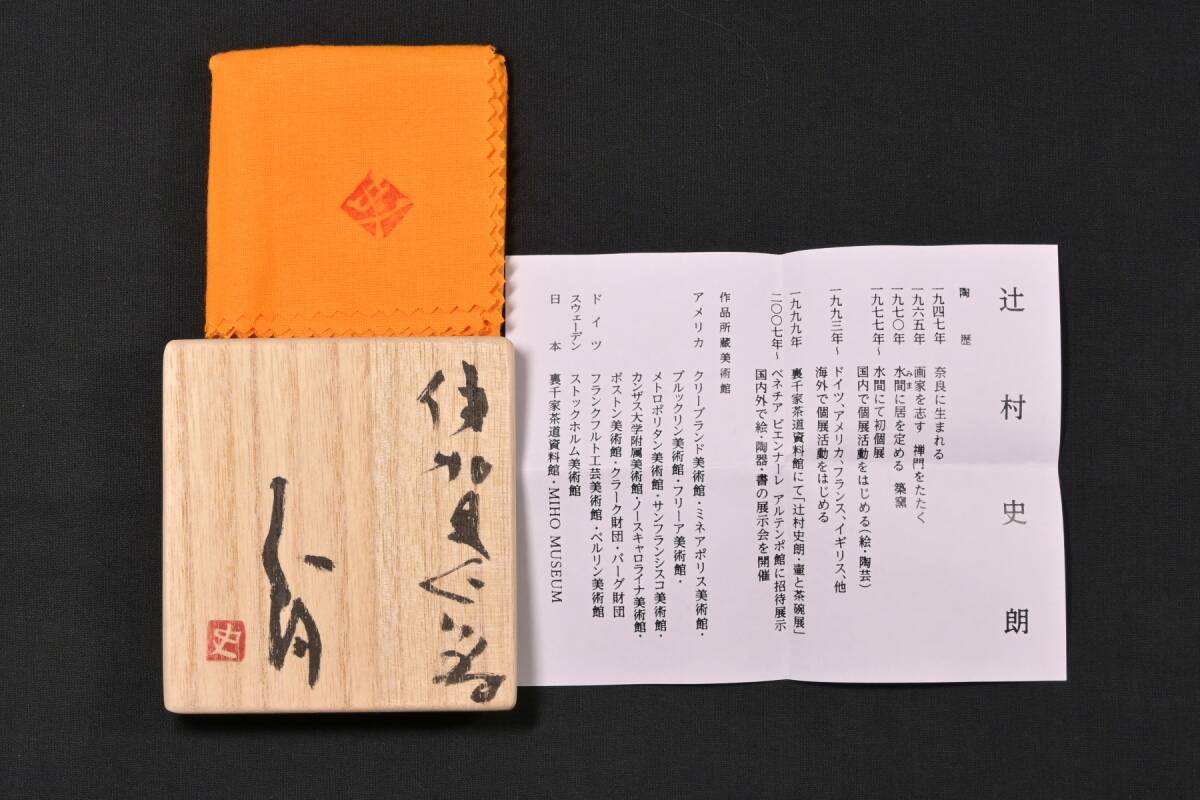 辻村史朗
陶歴
一九四七年 奈良に生まれる
一九六五年 画家を志す 禅門をたたく
一九七〇年 水間に居を定める 築窯
みま
一九七七年~ 水間にて初個展
国内で個展活動をはじめる(絵・陶芸)
一九九三年~ ドイツ、アメリカ、フランス、イギリス、他
海外で個展活動をはじめる
一九九九年 裏千家茶道資料館にて「辻村史朗・壷と茶碗展」
二〇〇七年~ ベネチア ビエンナーレ アルテンポ館に招待展示
国内外で絵・陶器・書の展示会を開催
作品所蔵美術館
アメリカ クリーブランド美術館・ミネアポリス美術館・
ブルックリン美術館・フリーア美術館・
メトロポリタン美術館・サンフランシスコ美術館・
カンザス大学附属美術館・ノースキャロライナ美術館・
ボストン美術館・クラーク財団・バーグ財団
ドイツ フランクフルト工芸美術館・ベルリン美術館
スウェーデン ストックホルム美術館
日本 裏千家茶道資料館・MIHO MUSEUM
史